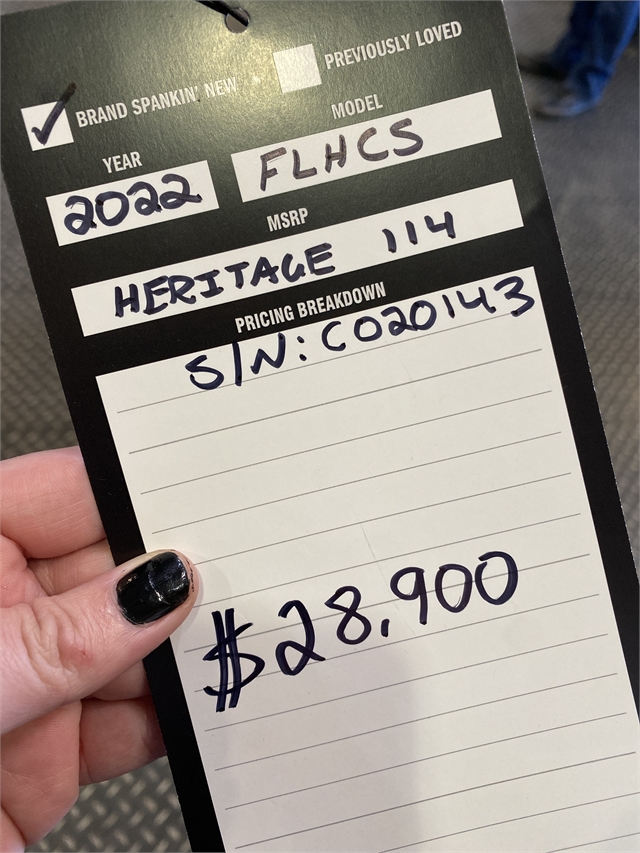 BRAND SPANKIN' NEW
PREVIOUSLY LOVED
YEAR
MODEL
2022
FLHCS
MSRP
HERITAGE 114
PRICING BREAKDOWN
S/N: C020143
$28,900